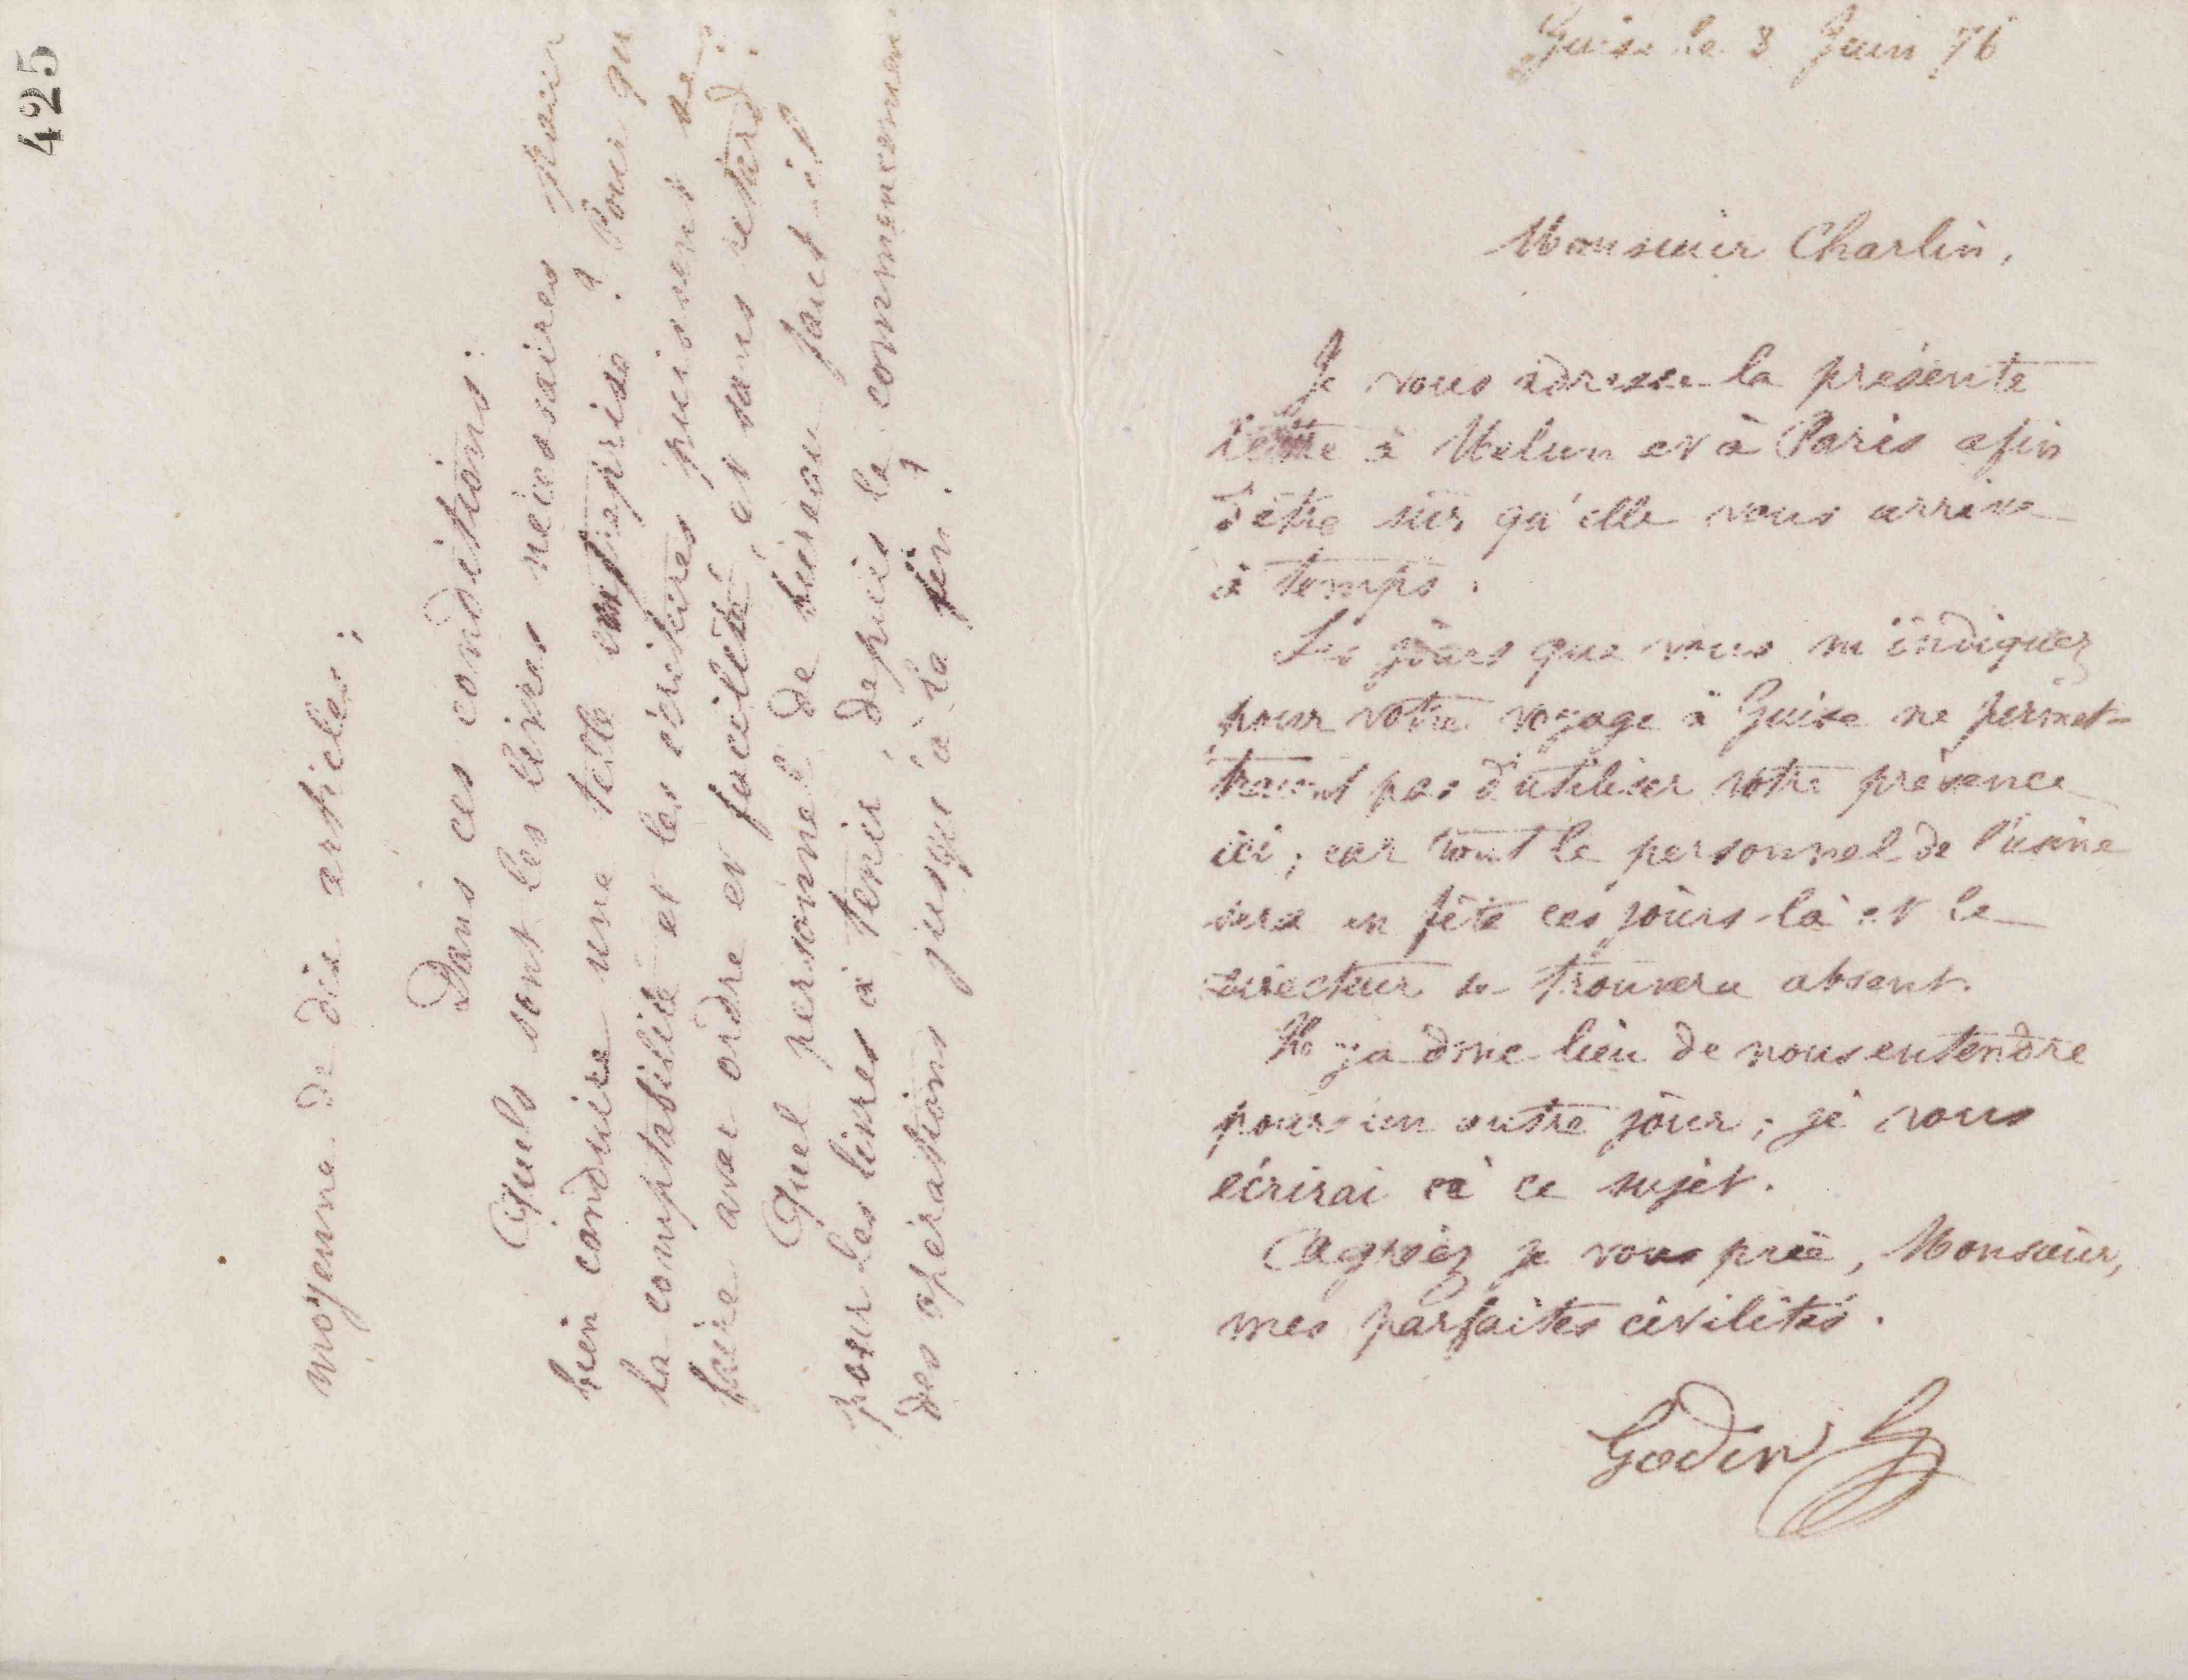 425
moyenne de dix articles ;
Dans ces conditions :
Quels sont les livres nécessaires pour
bien conduire une telle entreprise ? Pour que
la comptabilité et les écritures puissent se
faire avec ordre et facilité, et sans retard ?
Quel personnel de bureau faut-il
pour les livres à tenir, depuis le commencement
des opérations jusqu'à la fin ?
Guise le 3 Juin 76
Monsieur Charlin,
Je vous adresse la présente
lettre à Melun et à Paris afin
d'être sûr qu'elle vous arrive
à temps.
Les jours que vous m'indiquez
pour votre voyage à Guise ne permet-
traient pas d'utiliser votre présence
ici ; car tout le personnel de l'usine
sera en fête ces jours-là et le
directeur se trouvera absent.
Il y a donc lieu de nous entendre
pour un autre jour ; je vous
écrirai à ce sujet.
Agréez je vous prie, Monsieur,
mes parfaites civilités.
Godin